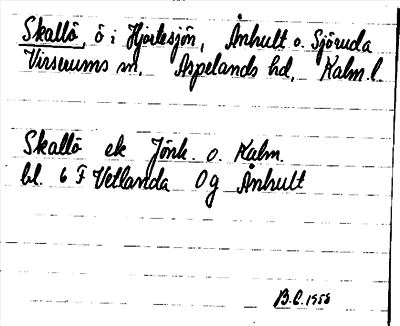 Skallö, ö i Hjortesjön, Ånhult o. Sjöruda
Virserums sn, Aspelands hd, Kalm. l.
Skallö ek Jönk. o. Kalm.
bl. 6 F Vetlanda Og Ånhult
B.E. 1958